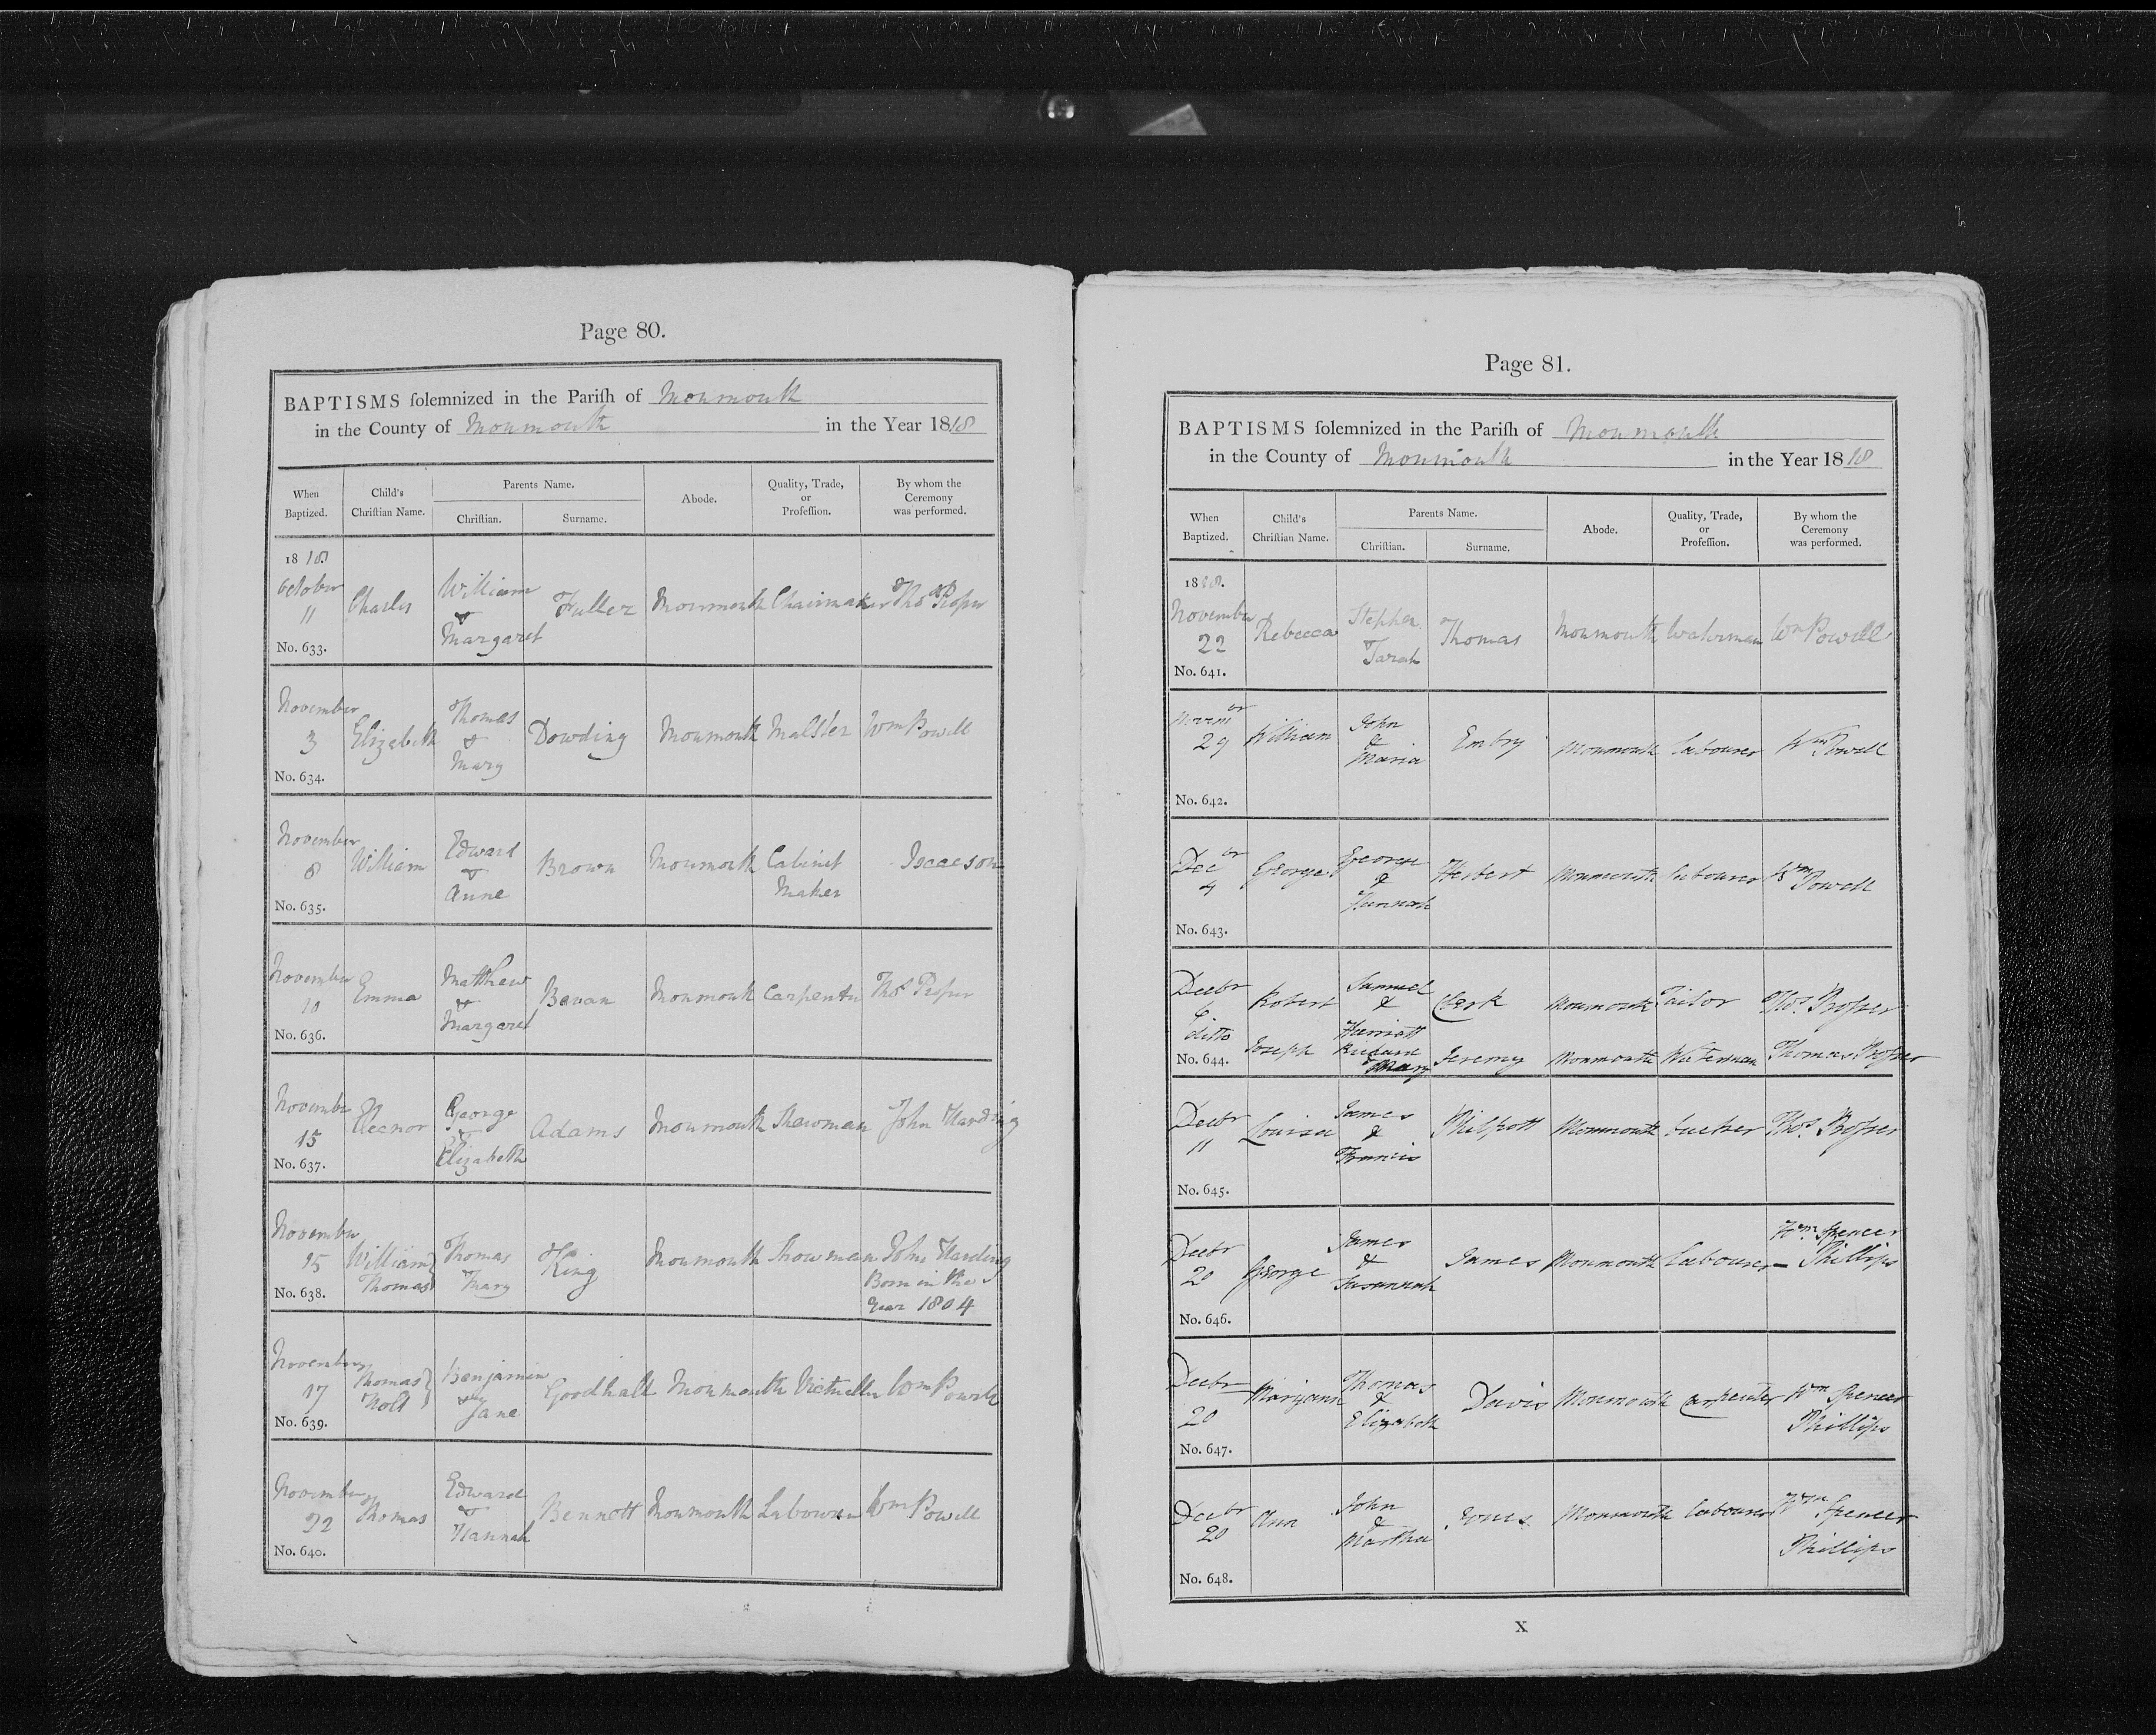 Page 80.
BAPTISMS ſolemnized in the Pariſh of Monmouth
in the County of Monmouth in the Year 1818
When Baptized. Child's Chriſtian Name. Parents Name. Chriſtian. Surname. Abode. Quality, Trade, or Profeſſion. By whom the Ceremony was performed.
1818.
October 11 Charles William & Margaret Fuller Monmouth Chairmaker Thos Prosser
No. 633.
November 3 Elizabeth Thomas & Mary Dowding Monmouth Malster Wm Powell
No. 634.
November 8 William Edward & Anne Brown Monmouth Cabinet Maker Isaacson
No. 635.
November 10 Emma Matthew & Margaret Bevan Monmouth Carpenter Thos Prosser
No. 636.
November 15 Eleenor George & Elizabeth Adams Monmouth Shewman John Harding
No. 637.
November 15 William Thomas Thomas Mary King Monmouth Showman John Harding
Born in the Year 1804
No. 638.
November 17 Thomas Holt Benjamin & Jane Goodhall Monmouth Victualler Wm Powell
No. 639.
November 22 Thomas Edward & Hannah Bennett Monmouth Labourer Wm Powell
No. 640.
Page 81.
BAPTISMS ſolemnized in the Pariſh of Monmouth
in the County of Monmouth in the Year 1818
When Baptized. Child's Chriſtian Name. Parents Name. Chriſtian. Surname. Abode. Quality, Trade, or Profeſſion. By whom the Ceremony was performed.
1818.
November 22 Rebecca Stephen Sarah Thomas Monmouth Waterman Wm Powell
No. 641.
29 William John & Maria Embry Monmouth labourer Wm Powell
No. 642.
Decbr 4 George George & Hannah Herbert Monmouth labourer Wm Powell
No. 643.
Decbr 6 Robert Samuel & Harriott Clark Monmouth Tailor Thos. Prosser
ditto Joseph Richard & Mary Jeremy Monmouth Waterman Thomas Prosser
No. 644.
Decbr 11 Louisa James & Francis Philpott Monmouth Thos. Prosser
No. 645.
Decbr 20 George James & Susannah James Monmouth labourer Wm. Spencer Phillips
No. 646.
Decbr 20 Maryann Thomas & Elizabeth Davis Monmouth Carpenter Wm Spencer Phillips
No. 647.
Decbr 20 Ann John & Martha Jones Monmouth labourer Wm Spencer Phillips
No. 648.
X